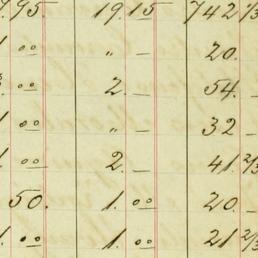 95. 19. 15 742 2/3
1 00 " — 20.
00 2. — 54. —
1 00 " — 32 —
1. 00 2. — 41. 2/3
50. 1. 00 20. —
1. 00 1. 00 21 2/3